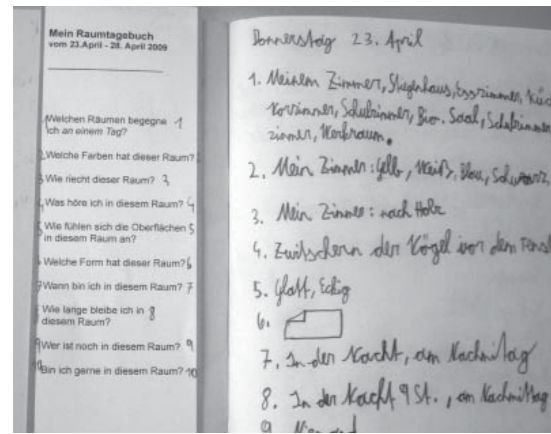 Mein Raumtagebuch
vom 23.April - 28. April 2009
1 Welchen Räumen begegne 1
ich an einem Tag?
2 Welche Farben hat dieser Raum? 2
3 Wie riecht dieser Raum? 3
4 Was höre ich in diesem Raum? 4
5 Wie fühlen sich die Oberflächen 5
in diesem Raum an?
6 Welche Form hat dieser Raum? 6
7 Wann bin ich in diesem Raum? 7
8 Wie lange bleibe ich in 8
diesem Raum?
9 Wer ist noch in diesem Raum? 9
10 Bin ich gerne in diesem Raum? 10
Donnerstag 23. April
1. Meinem Zimmer, Stiegenhaus, Esszimmer, Küc
Vorzimmer, Schulzimmer, Bio. Saal, Schulzimmer
zimmer, Werkraum.
2. Mein Zimmer: Gelb, Weiß, Blau, Schwarz.
3. Mein Zimmer: nach Holz
4. Zwitschern der Vögel vor dem Fenst
5. Glatt, Eckig
6.
7. In der Nacht, am Nachmitag
8. In der Nacht 9 St., am Nachmittag
9. Niemand